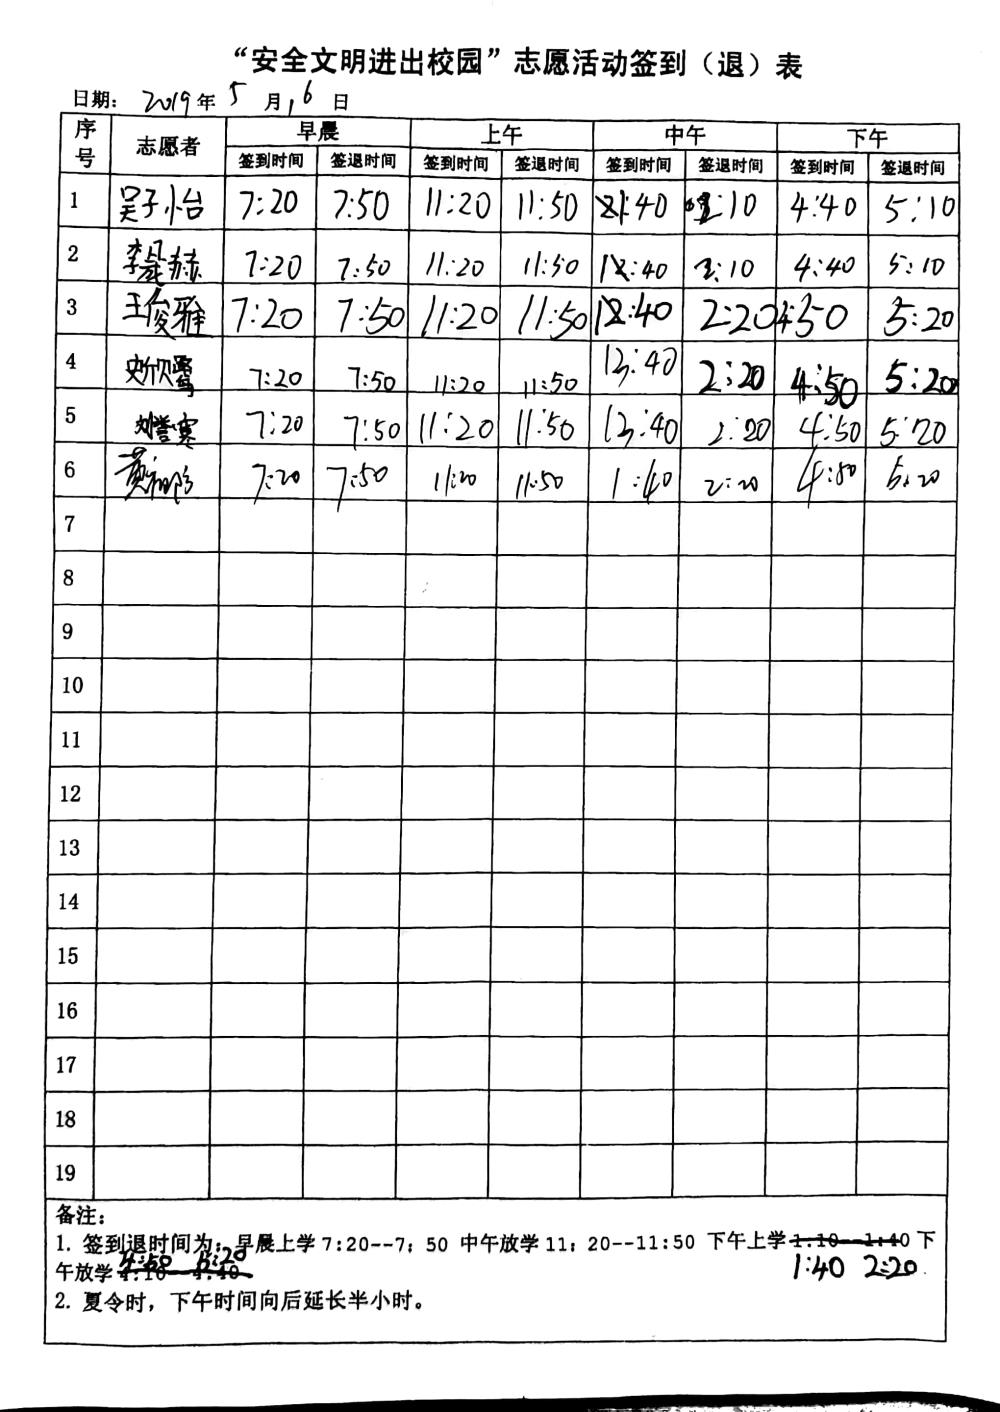 “安全文明进出校园”志愿活动签到（退）表
日期： 2019年 5 月 16 日
序号 志愿者 早晨 上午 中午 下午
签到时间 签退时间 签到时间 签退时间 签到时间 签退时间 签到时间 签退时间
1 吴子怡 7:20 7:50 11:20 11:50 1:40 2:10 4:40 5:10
2 李 赫 7:20 7:50 11:20 11:50 12:40 2:10 4:40 5:10
3 王俊雅 7:20 7:50 11:20 11:50 12:40 2:20 4:50 5:20
4 史欣鹭 7:20 7:50 11:20 11:50 13:40 2:20 4:50 5:20
5 刘 7:20 7:50 11:20 11:50 13:40 2:20 4:50 5:20
6 黄 7:20 7:50 11:20 11:50 1:40 2:20 4:50 5:20
7
8
9
10
11
12
13
14
15
16
17
18
19
备注：
1. 签到退时间为：早晨上学 7:20--7：50 中午放学 11：20--11:50 下午上学 1:10--1:40 下
午放学 4:10--4:40 4:50 5:20 1:40 2:20
2. 夏令时，下午时间向后延长半小时。